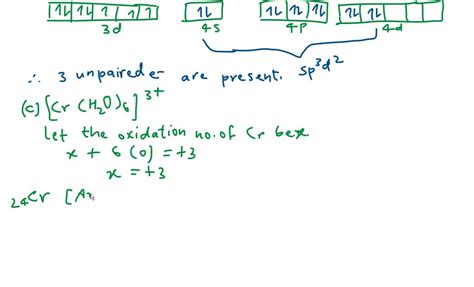 1L 1L 1 1 1 1L 1L 1L 1L 1L 1L
3d 4s 4p 4d
∴ 3 unpaired e⁻ are present. sp³d²
(c) [Cr(H₂O)₆]³⁺
Let the oxidation no. of Cr be x
x + 6(0) = +3
x = +3
₂₄Cr [Ar